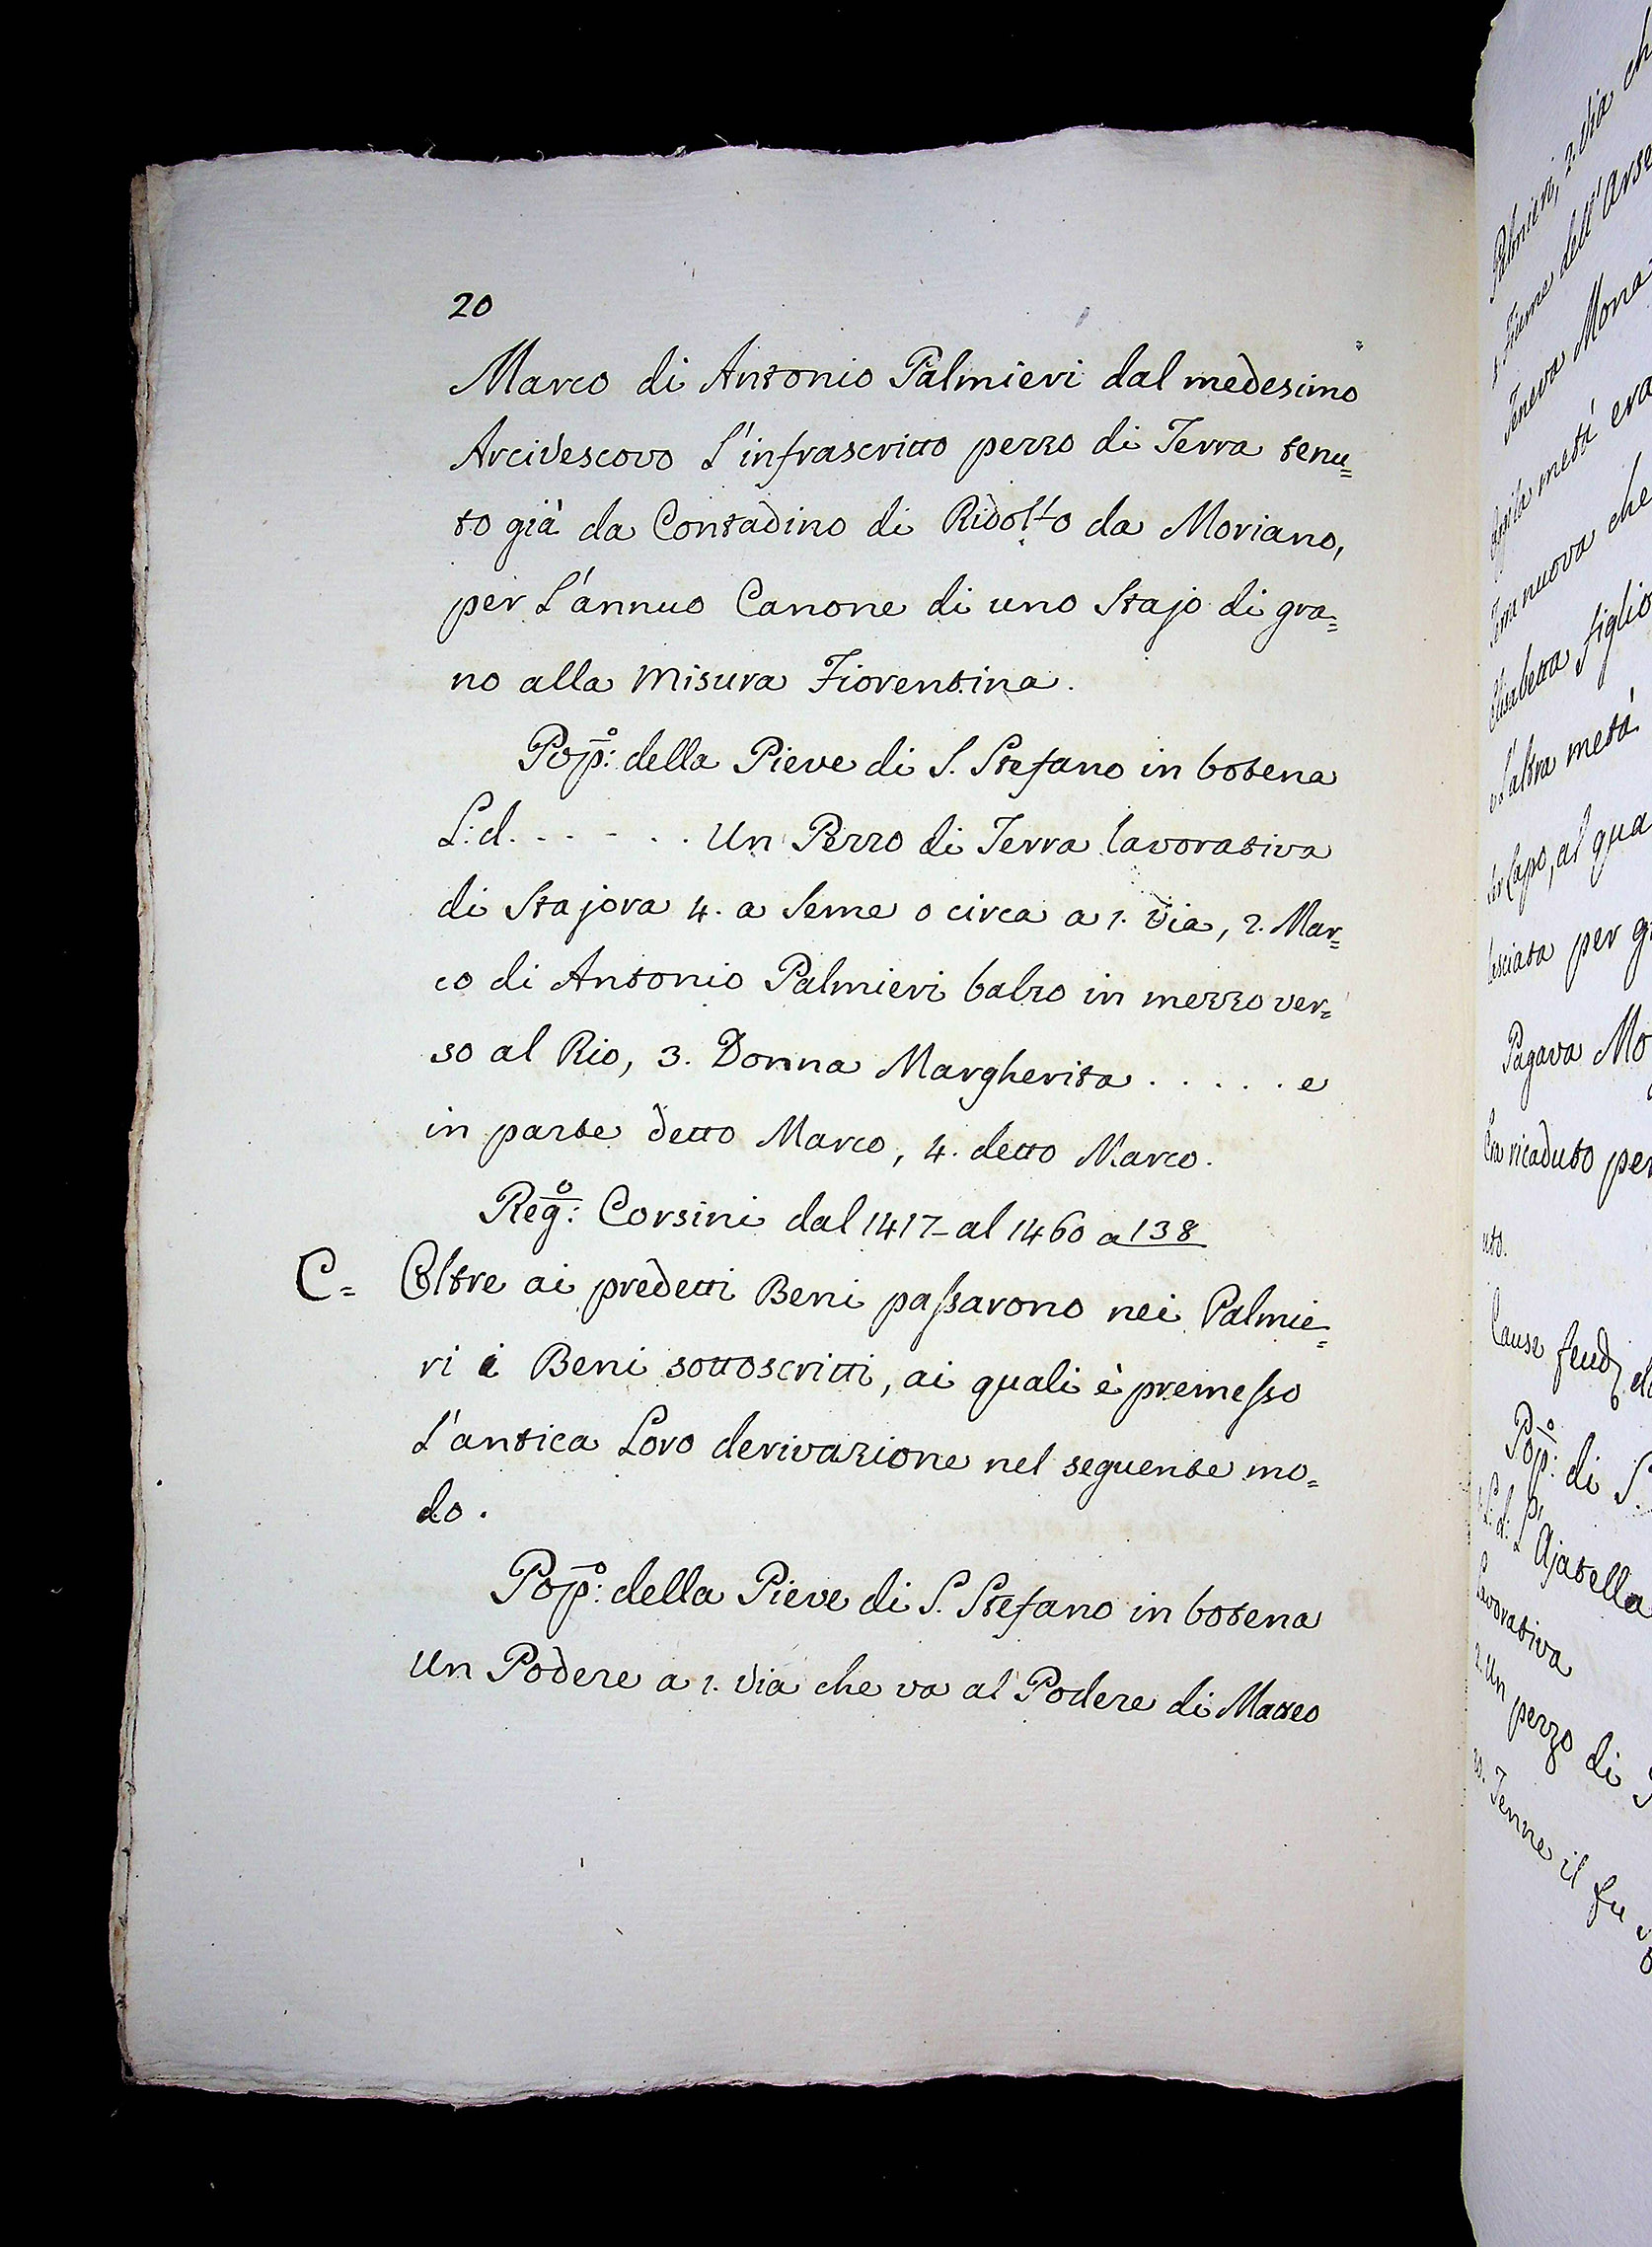 20
Marco di Antonio Palmieri dal medesimo
Arcivescovo L'infrascritto pezzo di Terra tenu=
to già da Contadino di Ridolfo da Moriano,
per L'annuo Canone di uno Stajo di gra=
no alla Misura Fiorentina.
Popº: della Pieve di S. Stefano in botena
L:d. . . . . . Un Pezzo di Terra lavorativa
di Stajora 4. a Seme o circa a 1. via, 2. Mar=
co di Antonio Palmieri balzo in mezzo ver=
so al Rio, 3. Donna Margherita . . . . . e
in parte detto Marco, 4. detto Marco.
Regº: Corsini dal 1417 - al 1460 a 138
C= Oltre ai predetti Beni passarono nei Palmie=
ri i Beni sottoscritti, ai quali è premesso
L'antica Loro derivazione nel seguente mo=
do.
Popº: della Pieve di S. Stefano in botena
Un Podere a 1. via che va al Podere di Matteo
Palmieri, 2. via
Fiume dell'
Teneva
metà
nuova che
Elisabetta
L'altra metà
al
lasciata per
Pagava
ricaduto
Cause
Popº: di S.
L:d:
Ajatella
Lavorativa
2. Un pezzo di
Tenne il fu